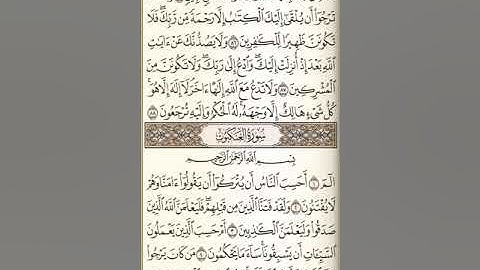 تَرۡجُوٓاْ أَن يُلۡقَىٰٓ إِلَيۡكَ ٱلۡكِتَٰبُ إِلَّا رَحۡمَةٗ مِّن رَّبِّكَۖ فَلَا
تَكُونَنَّ ظَهِيرٗا لِّلۡكَٰفِرِينَ ٨٦ وَلَا يَصُدُّنَّكَ عَنۡ ءَايَٰتِ
ٱللَّهِ بَعۡدَ إِذۡ أُنزِلَتۡ إِلَيۡكَۖ وَٱدۡعُ إِلَىٰ رَبِّكَۖ وَلَا تَكُونَنَّ مِنَ
ٱلۡمُشۡرِكِينَ ٨٧ وَلَا تَدۡعُ مَعَ ٱللَّهِ إِلَٰهًا ءَاخَرَۘ لَآ إِلَٰهَ إِلَّا هُوَۚ
كُلُّ شَيۡءٍ هَالِكٌ إِلَّا وَجۡهَهُۥۚ لَهُ ٱلۡحُكۡمُ وَإِلَيۡهِ تُرۡجَعُونَ ٨٨
سُورَةُ العَنكَبُوتِ
بِسۡمِ ٱللَّهِ ٱلرَّحۡمَٰنِ ٱلرَّحِيمِ
الٓمٓ ١ أَحَسِبَ ٱلنَّاسُ أَن يُتۡرَكُوٓاْ أَن يَقُولُوٓاْ ءَامَنَّا وَهُمۡ
لَا يُفۡتَنُونَ ٢ وَلَقَدۡ فَتَنَّا ٱلَّذِينَ مِن قَبۡلِهِمۡۖ فَلَيَعۡلَمَنَّ ٱللَّهُ ٱلَّذِينَ
صَدَقُواْ وَلَيَعۡلَمَنَّ ٱلۡكَٰذِبِينَ ٣ أَمۡ حَسِبَ ٱلَّذِينَ يَعۡمَلُونَ
ٱلسَّيِّـَٔاتِ أَن يَسۡبِقُونَاۚ سَآءَ مَا يَحۡكُمُونَ ٤ مَن كَانَ يَرۡجُواْ